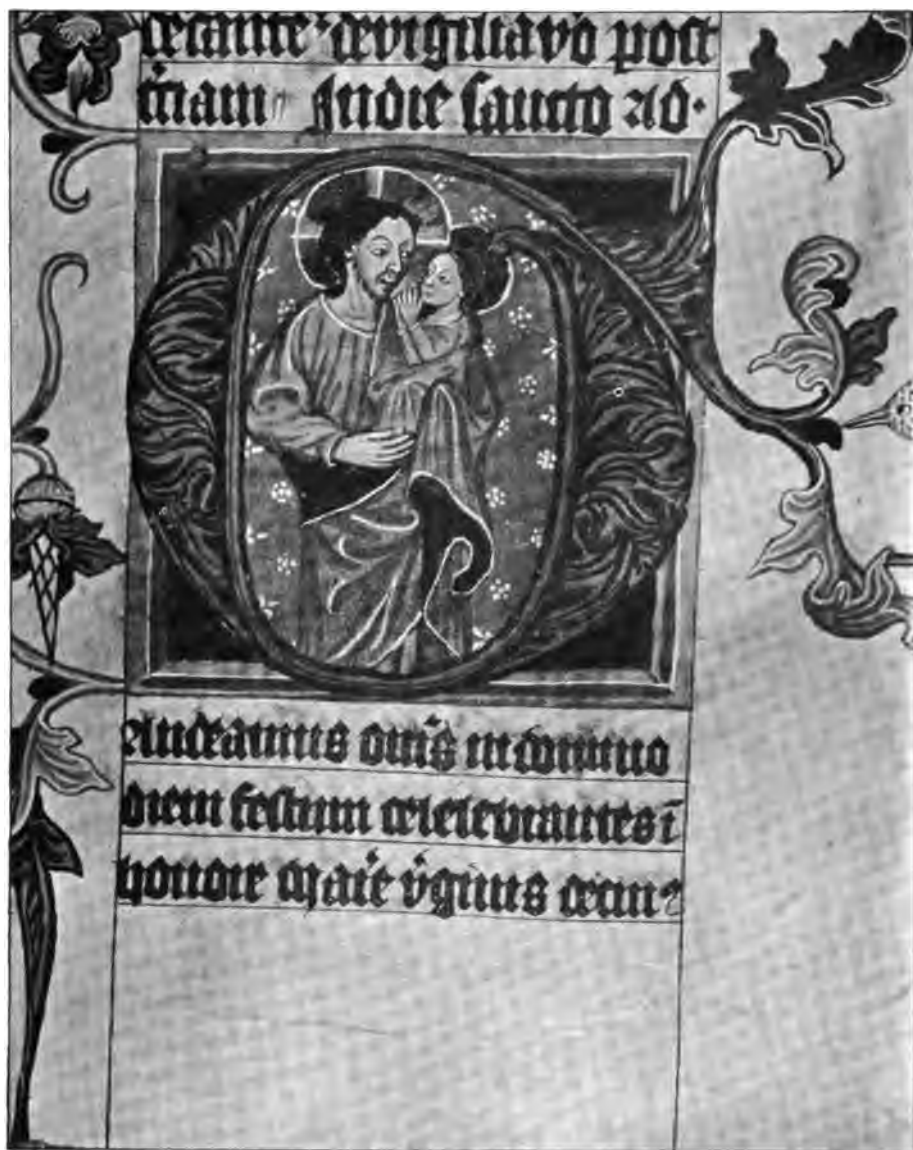 decante ꝛ devigiliavo post
missam In die sancto ad·
Audeamus om̅s in domino
diem festum celelebrantes i̅
honore Marie v̅ginis de cui⁹